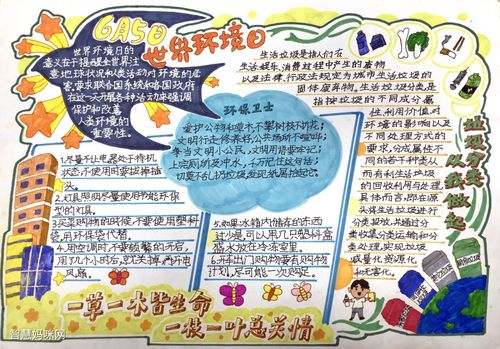 6月5日
世界环境日
世界环境日的
意义在于提醒全世界注
意地球状况和人类活动对环境的危
害,要求联合国系统和各国政府
在这一天开展各种活动来强调
保护和改善
人类环境的
重要性。
生活垃圾是指人们在
生活、娱乐、消费过程中产生的废物
以及法律、行政法规定为城市生活垃圾的
固体废弃物。生活垃圾分类是
指按垃圾的不同成分、属
性、利用价值对
环境的影响以及
不同处理方式的
要求,分成属性不
同的若干种类,从
而有利生活垃圾
的回收利用与处理。
具体而言,即在源
头将生活垃圾进行
分类投放,并通过分
类收集、分类运输和分
类处理,实现垃圾
减量化、资源化
和无害化。
垃圾分类
从我做起
环保卫士
爱护公物和草木,不攀树枝不折花;
文明行走修养好,公共场所不喧哗;
争当文明小公民,文明用语要牢记;
上完厕所及时冲水,千万记住这句话;
切莫乱扔垃圾,发现纸屑拾起它。
1.尽量不让电器处于待机
状态,不使用时应拔掉插
头。
2.灯具照明尽量使用节能环保
型的灯具。
3.买菜购物的时候不要使用塑料
袋,用环保袋代替。
4.用空调时不要频繁的开启,
用了几个小时后,就关掉,再开电
风扇。
5.如果冰箱内储存的东西
比较少,可以用几只塑料盒
盛水放在冷冻室里。
6.开车出门购物要有购物
计划,尽可能一次购足。
一草一木皆生命
一枝一叶总关情
智慧妈咪网